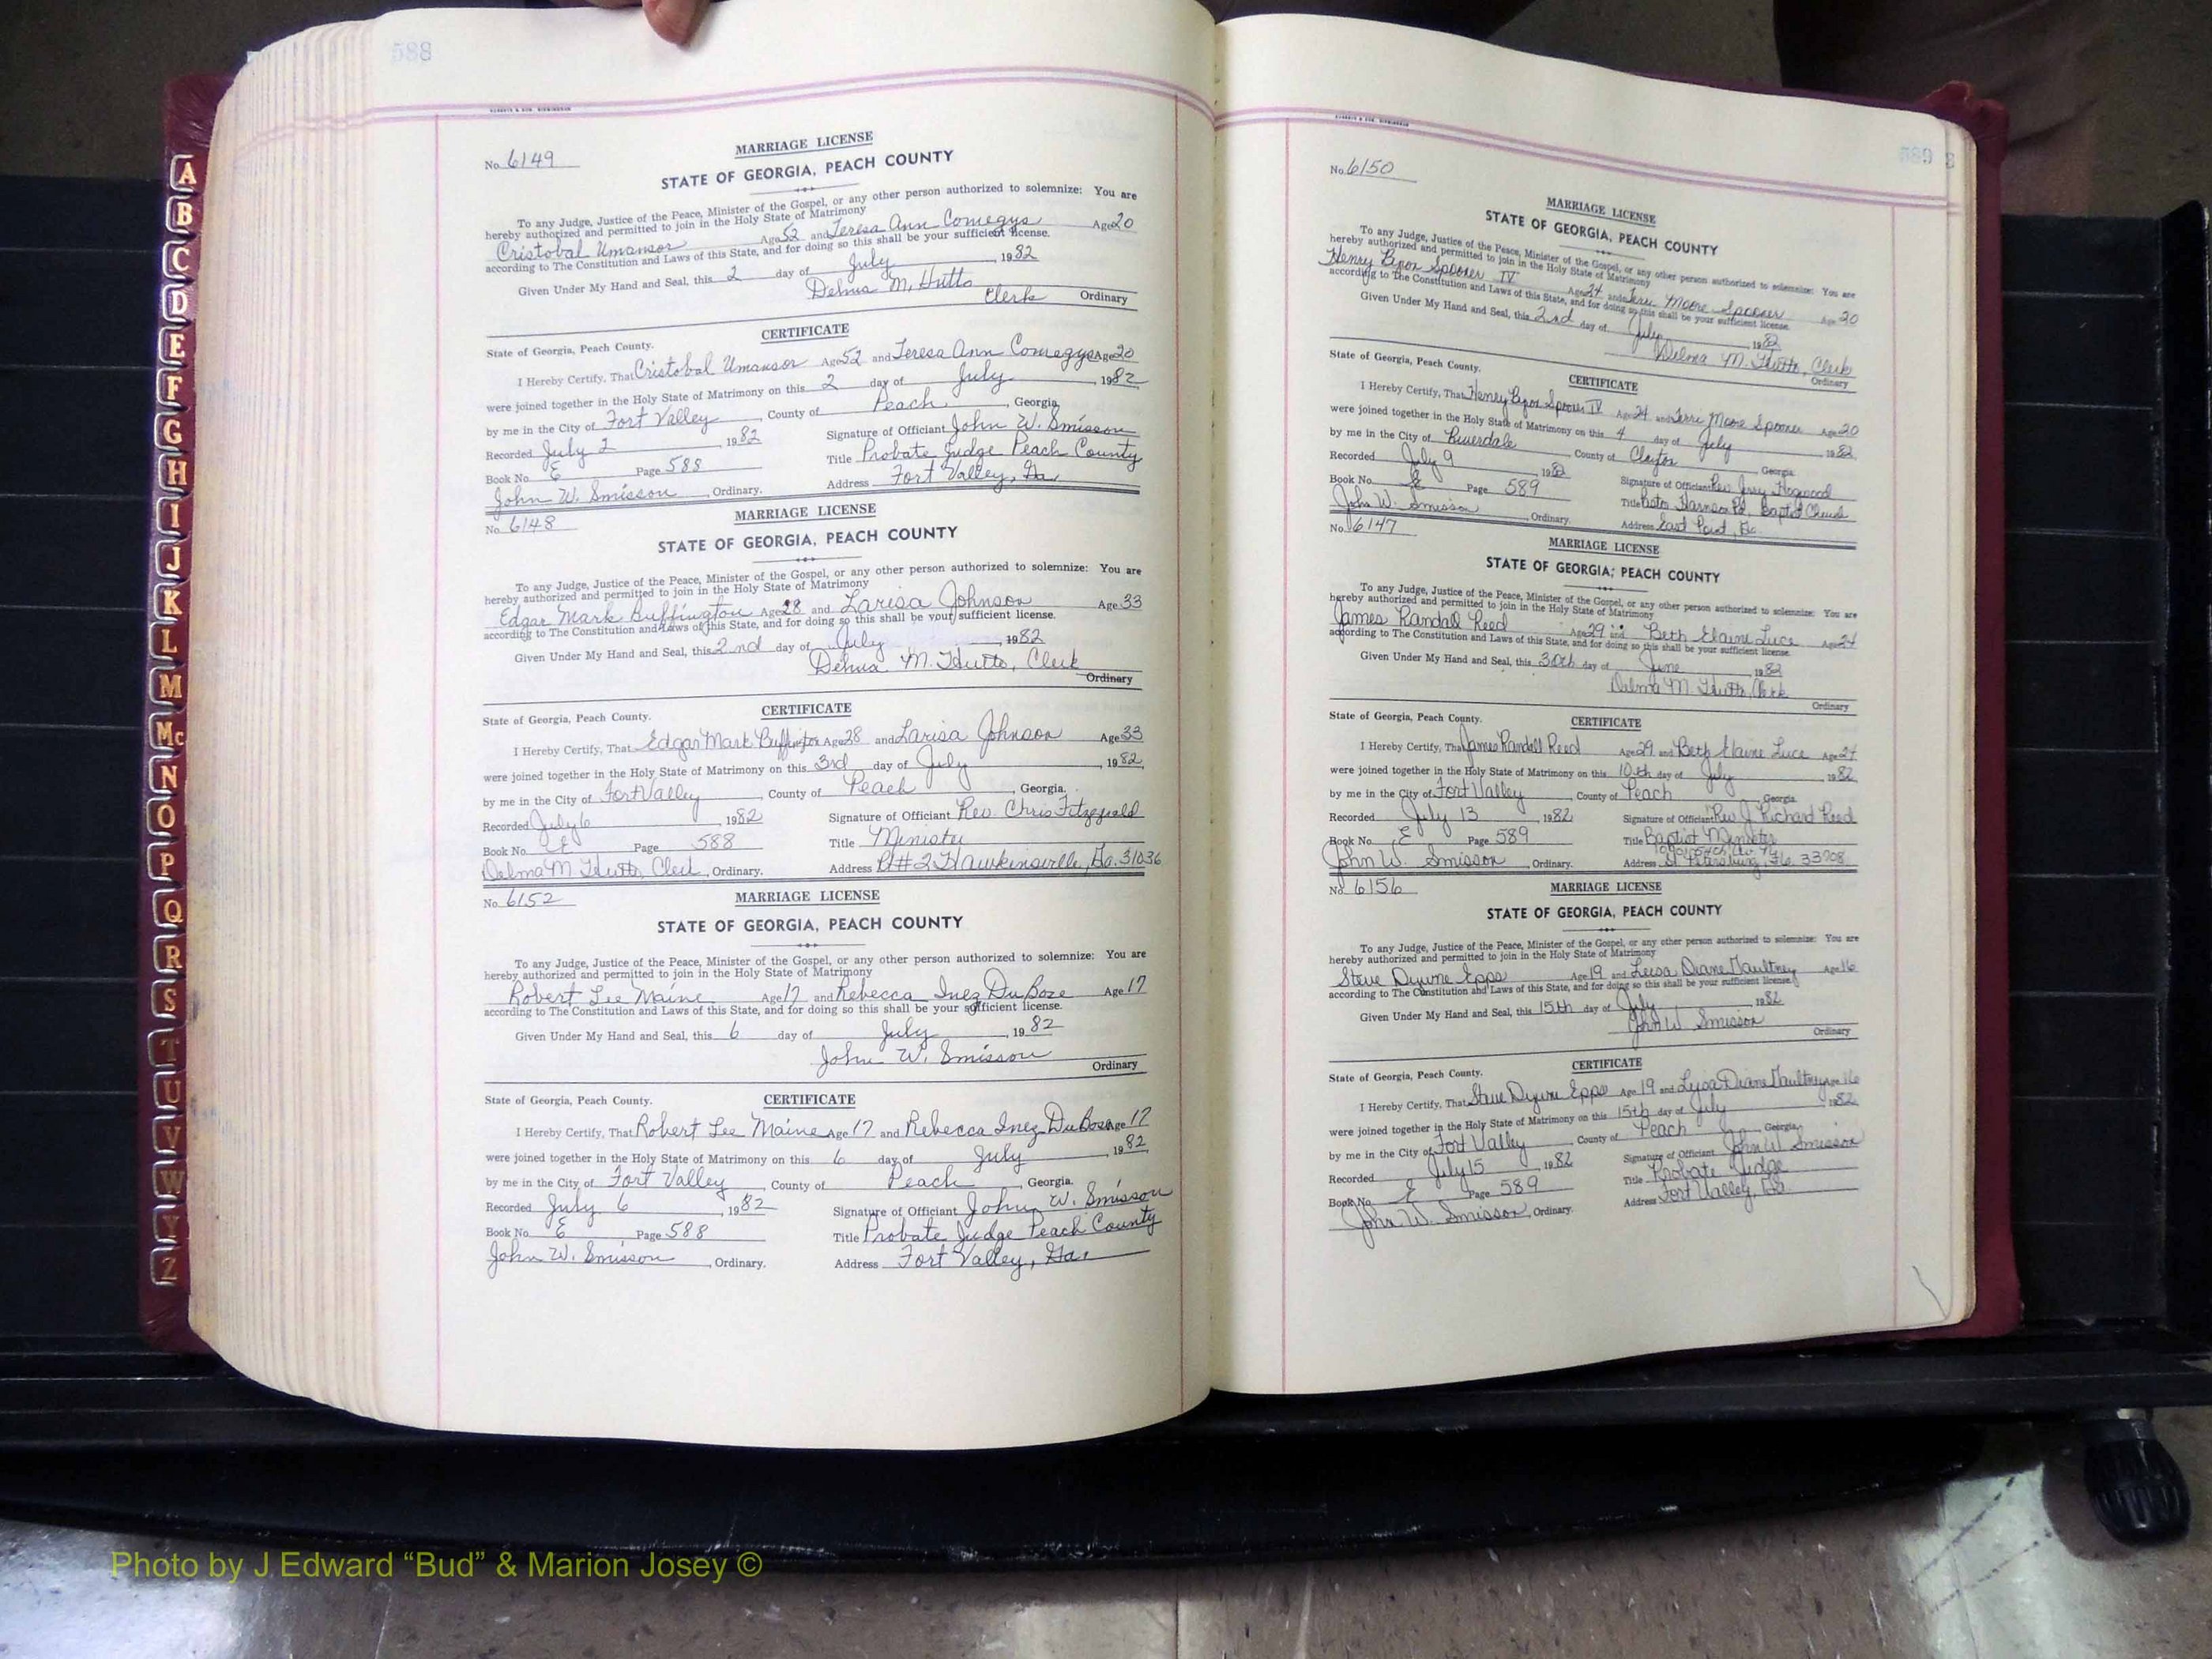 588
MARRIAGE LICENSE
No. 6149
STATE OF GEORGIA, PEACH COUNTY
To any Judge, Justice of the Peace, Minister of the Gospel, or any other person authorized to solemnize: You are
hereby authorized and permitted to join in the Holy State of Matrimony
Cristobal Umansor Age 52 and Teresa Ann Comegys Age 20
according to The Constitution and Laws of this State, and for doing so this shall be your sufficient license.
Given Under My Hand and Seal, this 2 day of July, 1982
Delma M. Hutto
Clerk Ordinary
CERTIFICATE
State of Georgia, Peach County.
I Hereby Certify, That Cristobal Umansor Age 52 and Teresa Ann Comegys Age 20
were joined together in the Holy State of Matrimony on this 2 day of July, 1982
by me in the City of Fort Valley, County of Peach, Georgia.
Recorded July 2 1982 Signature of Officiant John W. Smisson
Book No. E Page 588 Title Probate Judge Peach County
John W. Smisson, Ordinary. Address Fort Valley, Ga
No. 6148
MARRIAGE LICENSE
STATE OF GEORGIA, PEACH COUNTY
To any Judge, Justice of the Peace, Minister of the Gospel, or any other person authorized to solemnize: You are
hereby authorized and permitted to join in the Holy State of Matrimony
Edgar Mark Buffington Age 28 and Larisa Johnson Age 33
according to The Constitution and Laws of this State, and for doing so this shall be your sufficient license.
Given Under My Hand and Seal, this 2nd day of July, 1982
Delma M. Hutto, Clerk
Ordinary
CERTIFICATE
State of Georgia, Peach County.
I Hereby Certify, That Edgar Mark Buffington Age 28 and Larisa Johnson Age 33
were joined together in the Holy State of Matrimony on this 3rd day of July, 1982,
by me in the City of Fort Valley, County of Peach, Georgia.
Recorded July 6, 1982 Signature of Officiant Rev. Chris Fitzgerald
Book No. E Page 588 Title Minister
Delma M Hutto, Clerk, Ordinary. Address Rt #2 Hawkinsville, Ga. 31036
No. 6152
MARRIAGE LICENSE
STATE OF GEORGIA, PEACH COUNTY
To any Judge, Justice of the Peace, Minister of the Gospel, or any other person authorized to solemnize: You are
hereby authorized and permitted to join in the Holy State of Matrimony
Robert Lee Maine Age 17 and Rebecca Inez DuBose Age 17
according to The Constitution and Laws of this State, and for doing so this shall be your sufficient license.
Given Under My Hand and Seal, this 6 day of July, 1982
John W. Smisson
Ordinary
CERTIFICATE
State of Georgia, Peach County.
I Hereby Certify, That Robert Lee Maine Age 17 and Rebecca Inez DuBose Age 17
were joined together in the Holy State of Matrimony on this 6 day of July, 1982,
by me in the City of Fort Valley, County of Peach, Georgia.
Recorded July 6, 1982 Signature of Officiant John W. Smisson
Book No. E Page 588 Title Probate Judge Peach County
John W. Smisson, Ordinary. Address Fort Valley, Ga.
589
No. 6150
MARRIAGE LICENSE
STATE OF GEORGIA, PEACH COUNTY
To any Judge, Justice of the Peace, Minister of the Gospel, or any other person authorized to solemnize: You are
hereby authorized and permitted to join in the Holy State of Matrimony
Henry Byon Spooner IV Age 24 and Terri Moore Spooner Age 20
according to the Constitution and Laws of this State, and for doing so this shall be your sufficient license.
Given Under My Hand and Seal, this 2nd day of July, 1982
Delma M. Hutto, Clerk
Ordinary
CERTIFICATE
State of Georgia, Peach County.
I Hereby Certify, That Henry Byon Spooner IV Age 24 and Terri Moore Spooner Age 20
were joined together in the Holy State of Matrimony on this 4 day of July 1982,
by me in the City of Riverdale, County of Clayton, Georgia
Recorded July 9, 1982 Signature of Officiant Rev. Jerry Hogwood
Book No. E Page 589 Title Pastor Harrison Rd. Baptist Church
John W. Smisson, Ordinary. Address East Point, Ga.
No. 6147
MARRIAGE LICENSE
STATE OF GEORGIA, PEACH COUNTY
To any Judge, Justice of the Peace, Minister of the Gospel, or any other person authorized to solemnize: You are
hereby authorized and permitted to join in the Holy State of Matrimony
James Randall Reed Age 29 and Beth Elaine Luce Age 24
according to The Constitution and Laws of this State, and for doing so this shall be your sufficient license.
Given Under My Hand and Seal, this 30th day of June, 1982
Delma M. Hutto, Clerk
Ordinary
CERTIFICATE
State of Georgia, Peach County.
I Hereby Certify, That James Randall Reed Age 29 and Beth Elaine Luce Age 24
were joined together in the Holy State of Matrimony on this 10th day of July, 1982,
by me in the City of Fort Valley, County of Peach, Georgia.
Recorded July 13, 1982 Signature of Officiant Rev. J. Richard Reed
Book No. E Page 589 Title Baptist Minister
John W. Smisson, Ordinary. Address St. Petersburg, Fla. 33708
No. 6156
MARRIAGE LICENSE
STATE OF GEORGIA, PEACH COUNTY
To any Judge, Justice of the Peace, Minister of the Gospel, or any other person authorized to solemnize: You are
hereby authorized and permitted to join in the Holy State of Matrimony
Steve Dywne Epps Age 19 and Leesa Diane Gaultney Age 16
according to The Constitution and Laws of this State, and for doing so this shall be your sufficient license.
Given Under My Hand and Seal, this 15th day of July, 1982
John W. Smisson
Ordinary
CERTIFICATE
State of Georgia, Peach County.
I Hereby Certify, That Steve Dywne Epps Age 19 and Lysa Diane Gaultney Age 16
were joined together in the Holy State of Matrimony on this 15th day of July, 1982
by me in the City of Fort Valley, County of Peach, Georgia
Recorded July 15, 1982 Signature of Officiant John W. Smisson
Book No. E Page 589 Title Probate Judge
John W. Smisson, Ordinary. Address Fort Valley, Ga.
A
B
C
D
E
F
G
H
I
J
K
L
M
Mc
N
O
P
Q
R
S
T
U
V
W
Y
Z
Photo by J Edward “Bud” & Marion Josey ©